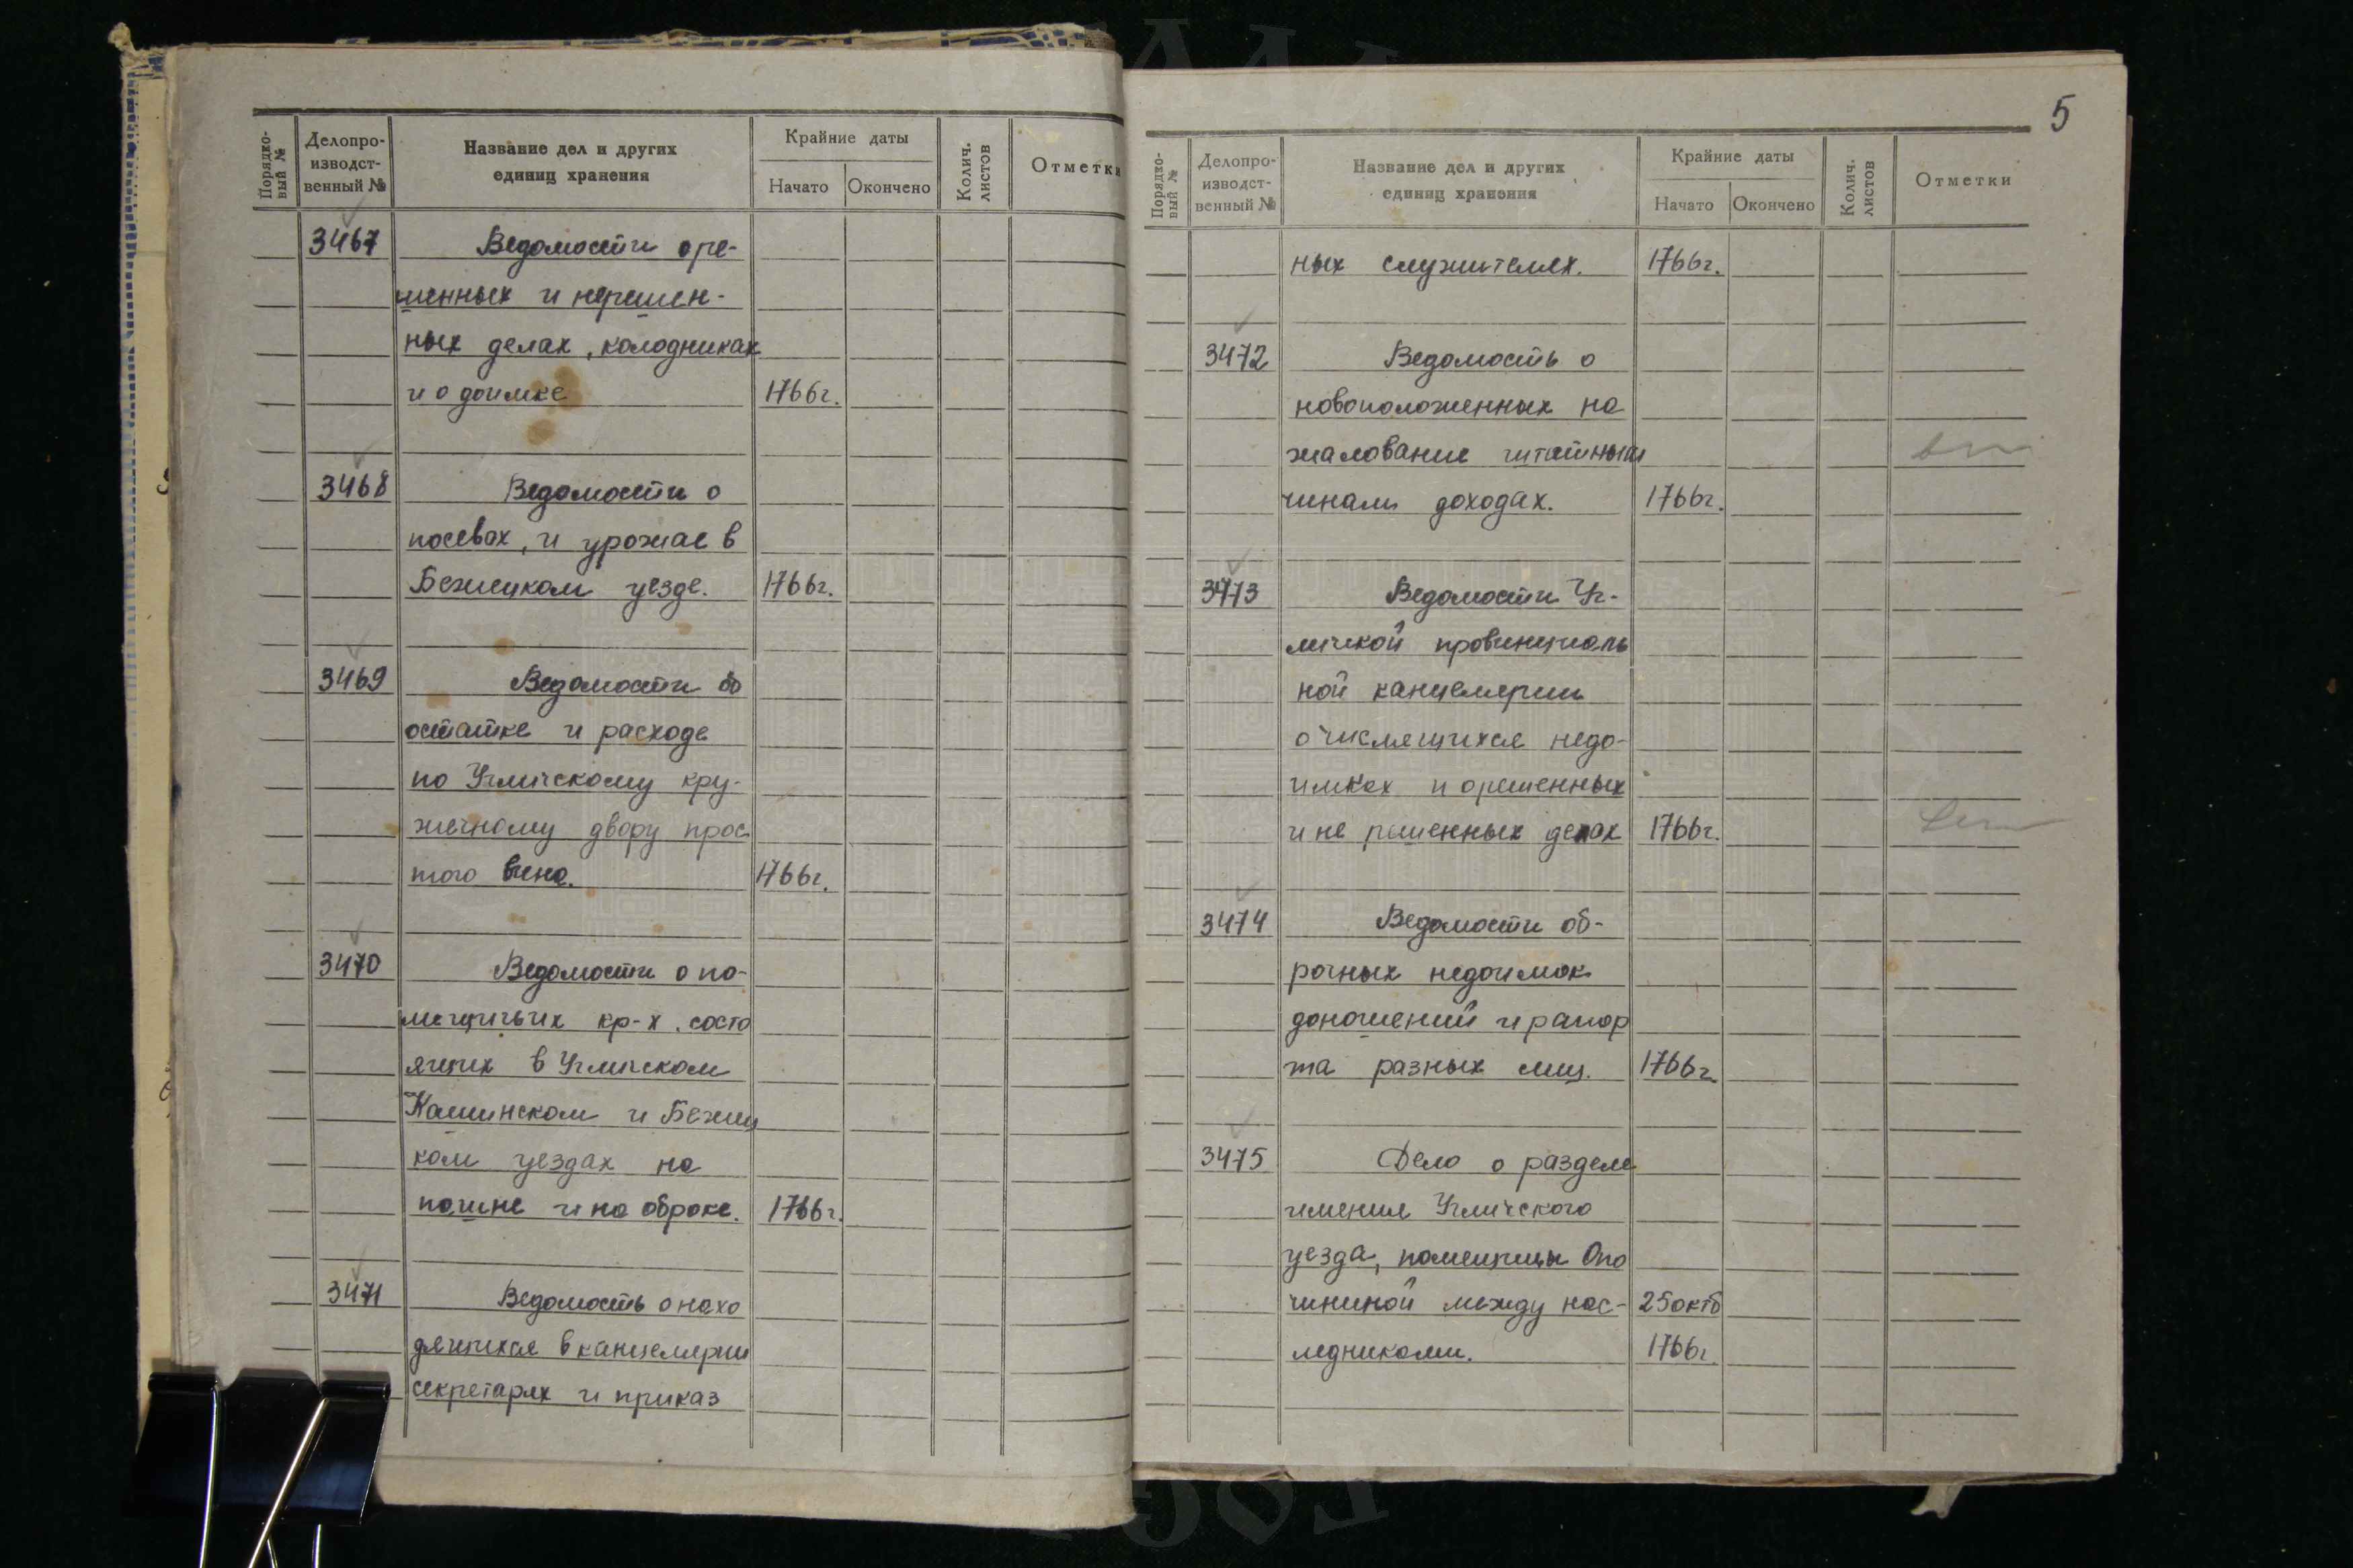 Порядко-
вый №
Делопро-
изводст-
венный №
Название дел и других
единиц хранения
Крайние даты
Начато
Окончено
Колич.
листов
Отметки
3467 Ведомости о ре-
шенных и нерешен-
ных делах, колодниках
и о доимке 1766г.
3468 Ведомости о
посевах, и урожае в
Бежецком уезде. 1766г.
3469 Ведомости об
остатке и расходе
по Угличскому кру-
жечному двору прос
того вина. 1766г.
3470 Ведомости о по-
мещичьих кр-х, состо
ящих в Угличском
Кашинском и Бежец
ком уездах на
пашне и на оброке. 1766г.
3471 Ведомость о нахо
дящихся в канцелярии
секретарях и приказ
5
Порядко-
вый №
Делопро-
изводст-
венный №
Название дел и других
единиц хранения
Крайние даты
Начато
Окончено
Колич.
листов
Отметки
ных служителях. 1766г.
3472 Ведомость о
новоположенных на
жалование штатным
чинам доходах. 1766г.
3473 Ведомости Уг-
личкой провинциаль
ной канцелярии
о числящихся недо-
имках и о решенных
и не решенных делах 1766г.
3474 Ведомости об-
рочных недоимок
доношений и рапор
та разных лиц. 1766г.
3475 Дело о разделе
имения Угличского
уезда, помещицы Опо
чининой между нас- 25 октб
ледниками. 1766г.